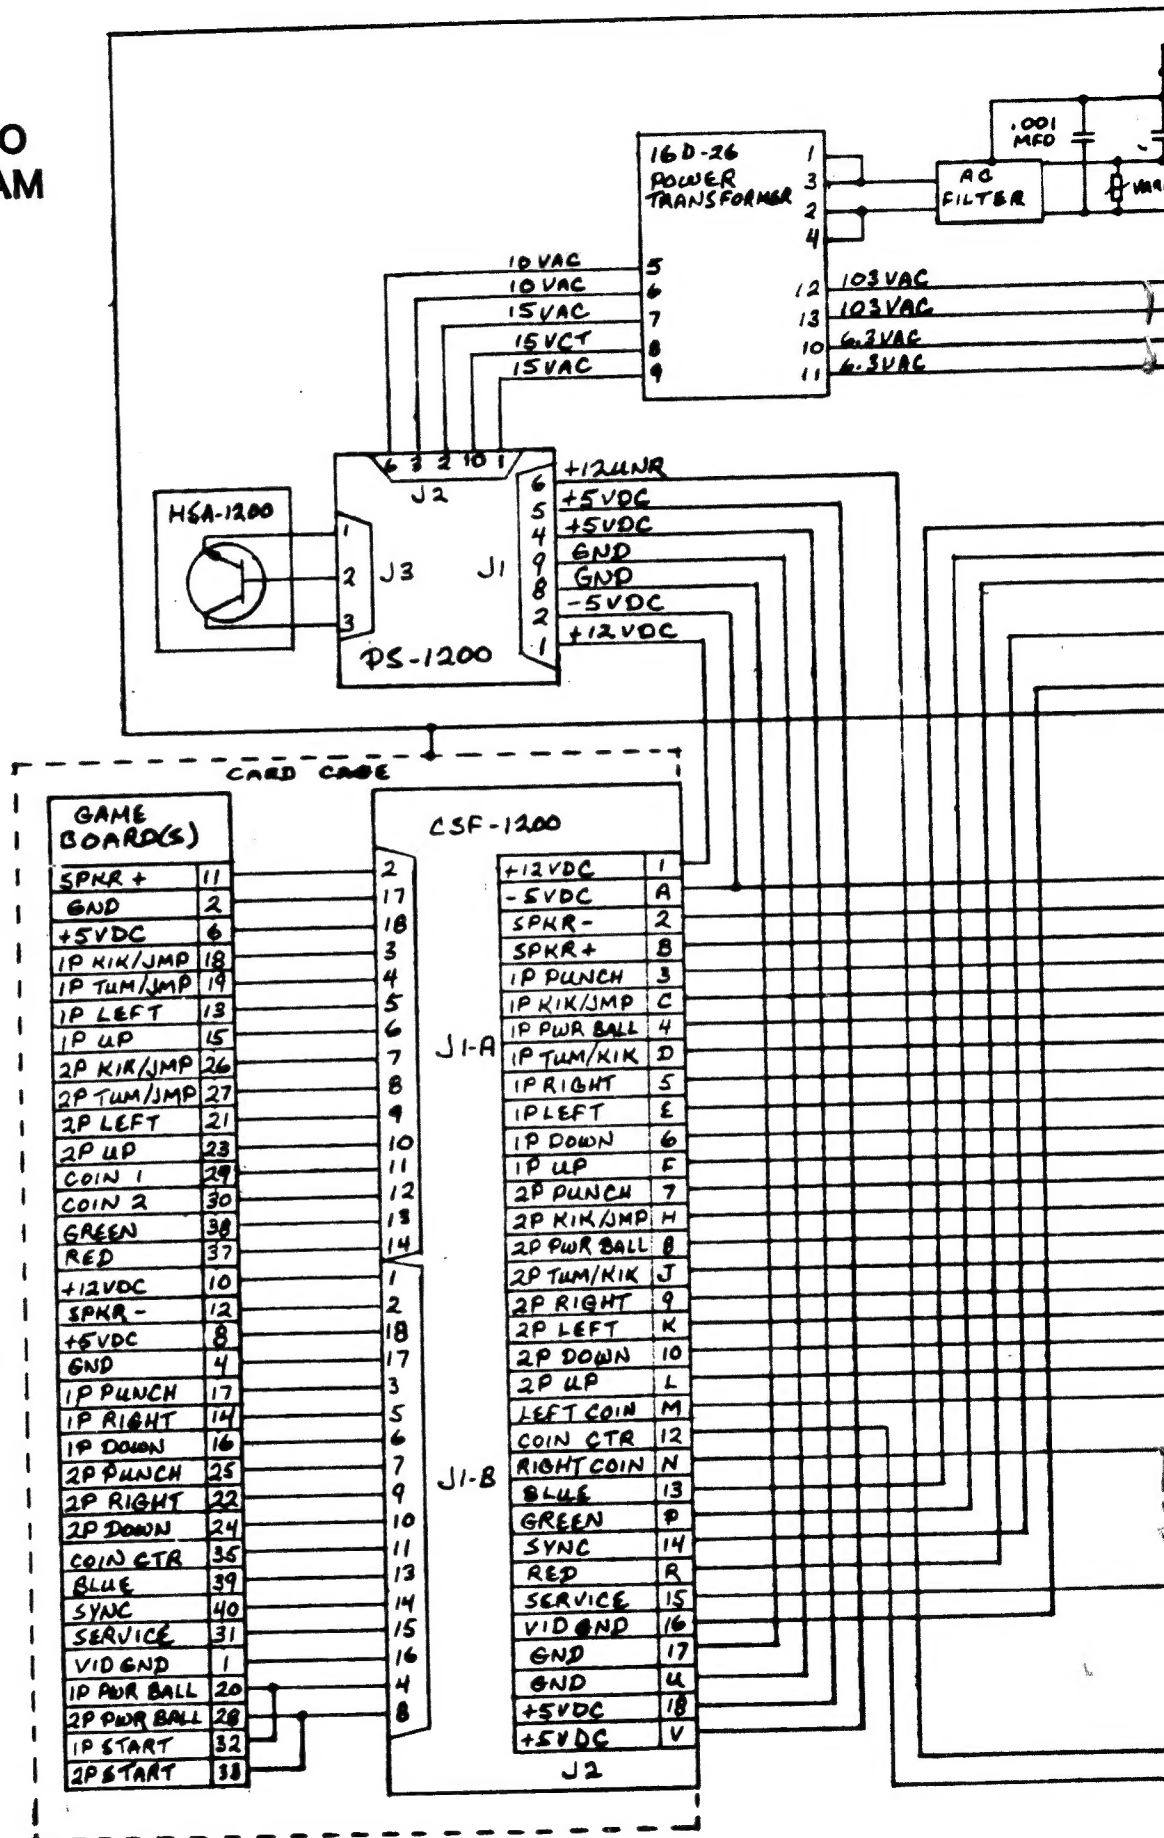 O
AM
.001
MFD
16D-26
POWER
TRANSFORMER
1
3
2
4
AC
FILTER
VARI
10 VAC 5
10 VAC 6
15 VAC 7
15 VCT 8
15 VAC 9
12 103 VAC
13 103 VAC
10 6.3 VAC
11 6.3 VAC
6 3 2 10 1
J2
HSA-1200
1
2
3
J3
J1
6 +12UNR
5 +5VDC
4 +5VDC
9 GND
8 GND
2 -5VDC
1 +12VDC
PS-1200
CARD CAGE
GAME
BOARD(S)
SPKR + 11
GND 2
+5VDC 6
1P KIK/JMP 18
1P TUM/JMP 19
1P LEFT 13
1P UP 15
2P KIK/JMP 26
2P TUM/JMP 27
2P LEFT 21
2P UP 23
COIN 1 29
COIN 2 30
GREEN 38
RED 37
+12VDC 10
SPKR - 12
+5VDC 8
GND 4
1P PUNCH 17
1P RIGHT 14
1P DOWN 16
2P PUNCH 25
2P RIGHT 22
2P DOWN 24
COIN CTR 35
BLUE 39
SYNC 40
SERVICE 31
VID GND 1
1P PWR BALL 20
2P PWR BALL 28
1P START 32
2P START 33
CSF-1200
2
17
18
3
4
5
6
7
8
9
10
11
12
13
14
J1-A
1
2
18
17
3
5
6
7
9
10
11
13
14
15
16
4
8
J1-B
+12VDC 1
-5VDC A
SPKR- 2
SPKR+ B
1P PUNCH 3
1P KIK/JMP C
1P PWR BALL 4
1P TUM/KIK D
1P RIGHT 5
1P LEFT E
1P DOWN 6
1P UP F
2P PUNCH 7
2P KIK/JMP H
2P PWR BALL 8
2P TUM/KIK J
2P RIGHT 9
2P LEFT K
2P DOWN 10
2P UP L
LEFT COIN M
COIN CTR 12
RIGHT COIN N
BLUE 13
GREEN P
SYNC 14
RED R
SERVICE 15
VID GND 16
GND 17
GND U
+5VDC 18
+5VDC V
J2